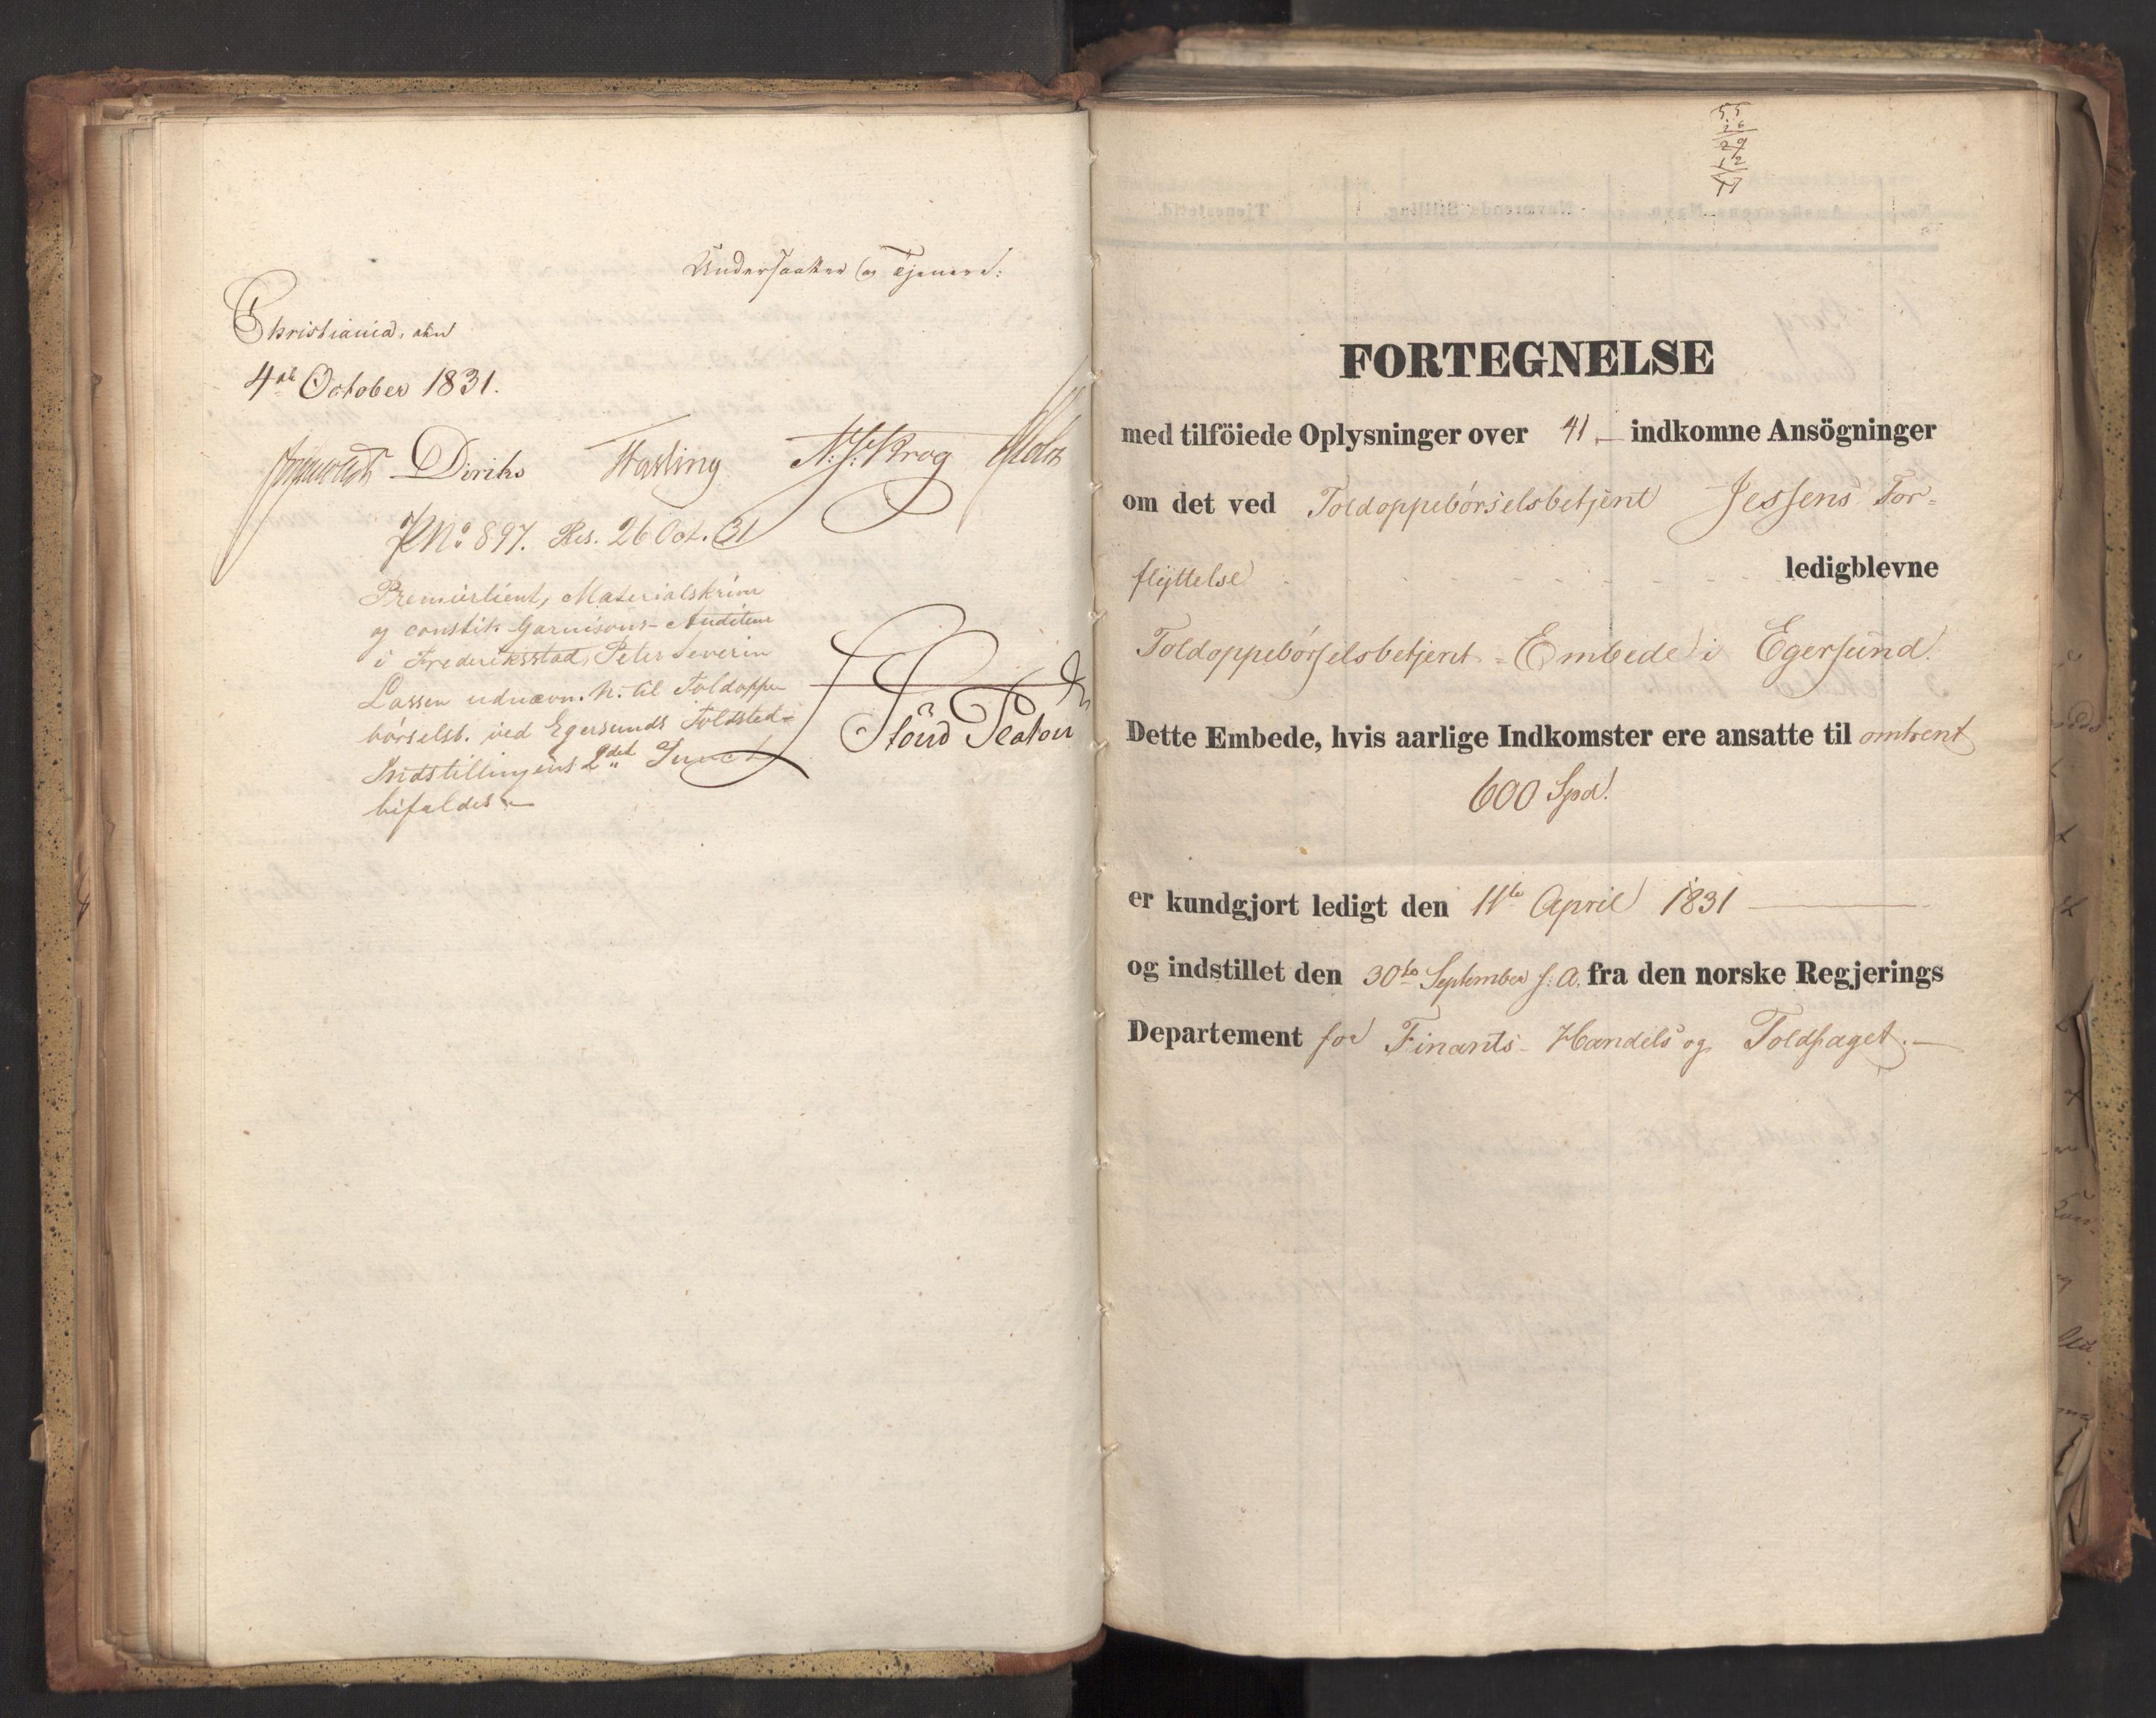 Undersaatter og Tjenere:
Christiania, den
4de October 1831.
Diriks Fasting N:J:Krog
JNo 897. Res. 26 Oct. 31
Premierlieut, Materialskriver
og constit. Garnisons-Auditeur
i Frederiksstad, Peter Severin
Lassen udnævn. N. til Toldoppe-
börselsb. ved Egersunds Toldsted -
Indstillingens 2det Punct
bifaldes -
55
26
29
12
17
FORTEGNELSE
med tilföiede Oplysninger over 41 - indkomne Ansögninger
om det ved Toldoppebörselsbetjent Jessens For-
flyttelse ledigblevne
Toldoppebörselsbetjent - Embede i Egersund.
Dette Embede, hvis aarlige Indkomster ere ansatte til omtrent
600 Spd.
er kundgjort ledigt den 11te April 1831
og indstillet den 30te September s: A. fra den norske Regjerings
Departement for Finants- Handels og Toldfaget. -